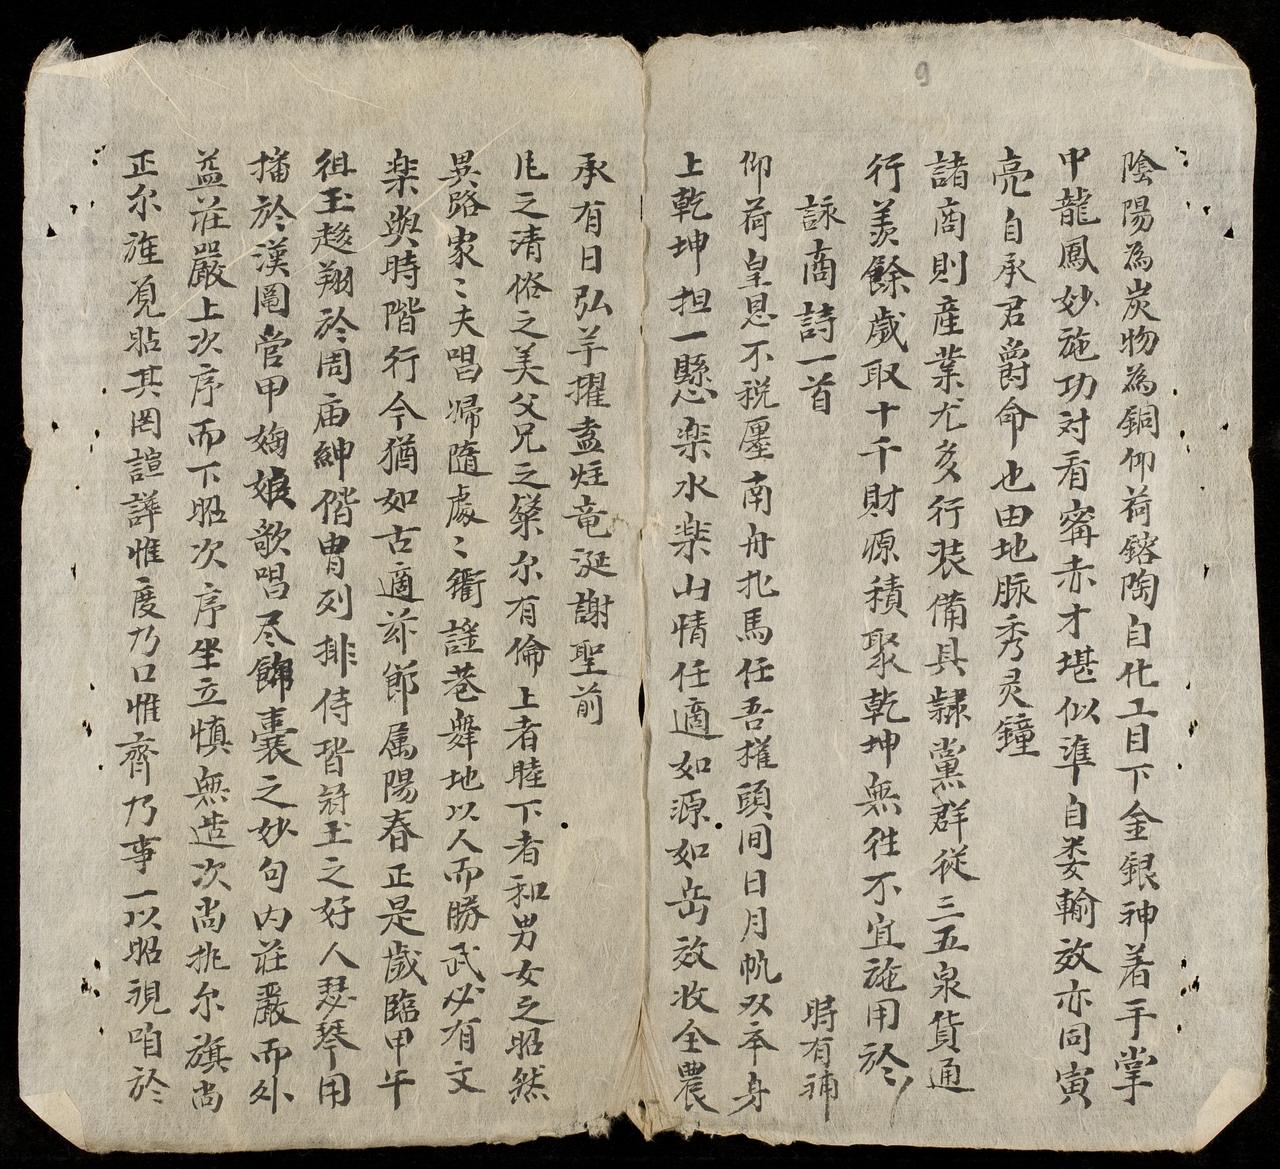 9
陰陽為炭物為銅仰荷鎔陶自化工目下金銀神着手掌
中龍鳳妙施功対看寗赤才堪似準自娄輸效亦同寅
亮自承君爵命也由地脉秀灵鐘
諸商則產業尤多行装備具隸黨群従三五泉貨通
行羡餘歳取十千財源積聚乾坤無徃不宜施用於
詠商詩一首
時有補
仰荷皇恩不税廛南舟北馬任吾権頭间日月帆双夲身
上乾坤担一懸楽水楽山情任適如源如岳效收全農
承有日弘羊擢盍炷竜涎謝聖前
凡之清俗之美父兄之槩尔有倫上者睦下者和男女之昭然
異路家〻夫唱婦隨處〻衢謡巷舞地以人而勝武必有文
楽與時階行今猶如古適茲節属陽春正是歳臨甲午
徂玉趍翔於周庙紳偕冑列排侍皆冠玉之好人瑟琴用
播於漢圖営甲娴娘歌唱尽錦囊之妙句内荘嚴而外
益荘嚴上次序而下昭次序坐立慎無造次尚挑尔旗尚
正尔旌覓貼其罔諠譁惟度乃口惟齊乃事一以昭視咱於